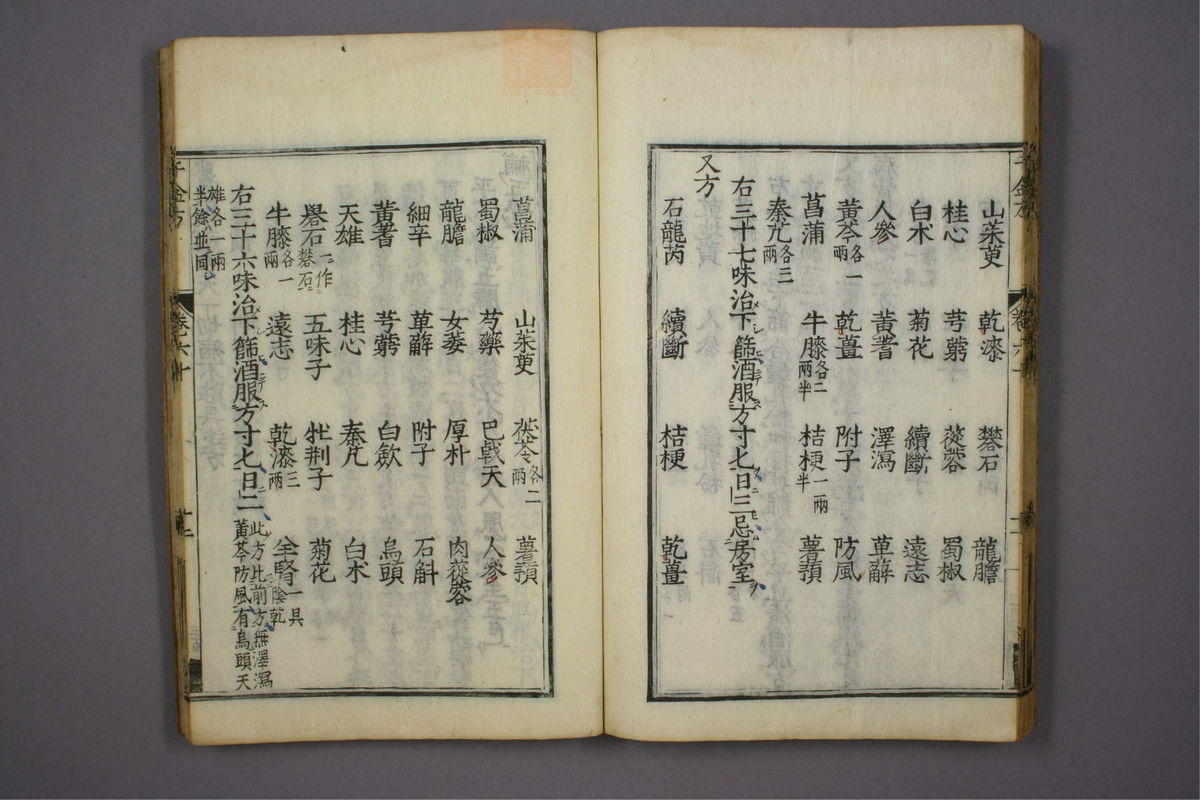 山茱萸 乾漆 礬石 龍膽
桂心 芎藭 蓯蓉 蜀椒
白朮 菊花 續斷 遠志
人參 黃耆 澤瀉 萆薢
黃芩各一兩 乾薑 附子 防風
菖蒲 牛膝各二兩半 桔梗一兩半 薯蕷
秦艽各三兩
右三十七味治下篩酒服方寸匕日三忌房室
又方
石龍芮 續斷 桔梗 乾薑
菖蒲 山茱萸 茯苓各二兩 薯蕷
蜀椒 芍藥 巴戟天 人參
龍膽 女萎 厚朴 肉蓯蓉
細辛 萆薢 附子 石斛
黃耆 芎藭 白斂 烏頭
天雄 桂心 秦艽 白朮
礜石一作礬石 五味子 牡荆子 菊花
牛膝各一兩 遠志 乾漆三兩 羊腎一具陰乾
右三十六味治下篩酒服方寸匕日二此方比前方無澤瀉黃芩防風有烏頭天
雄各一兩半餘並同